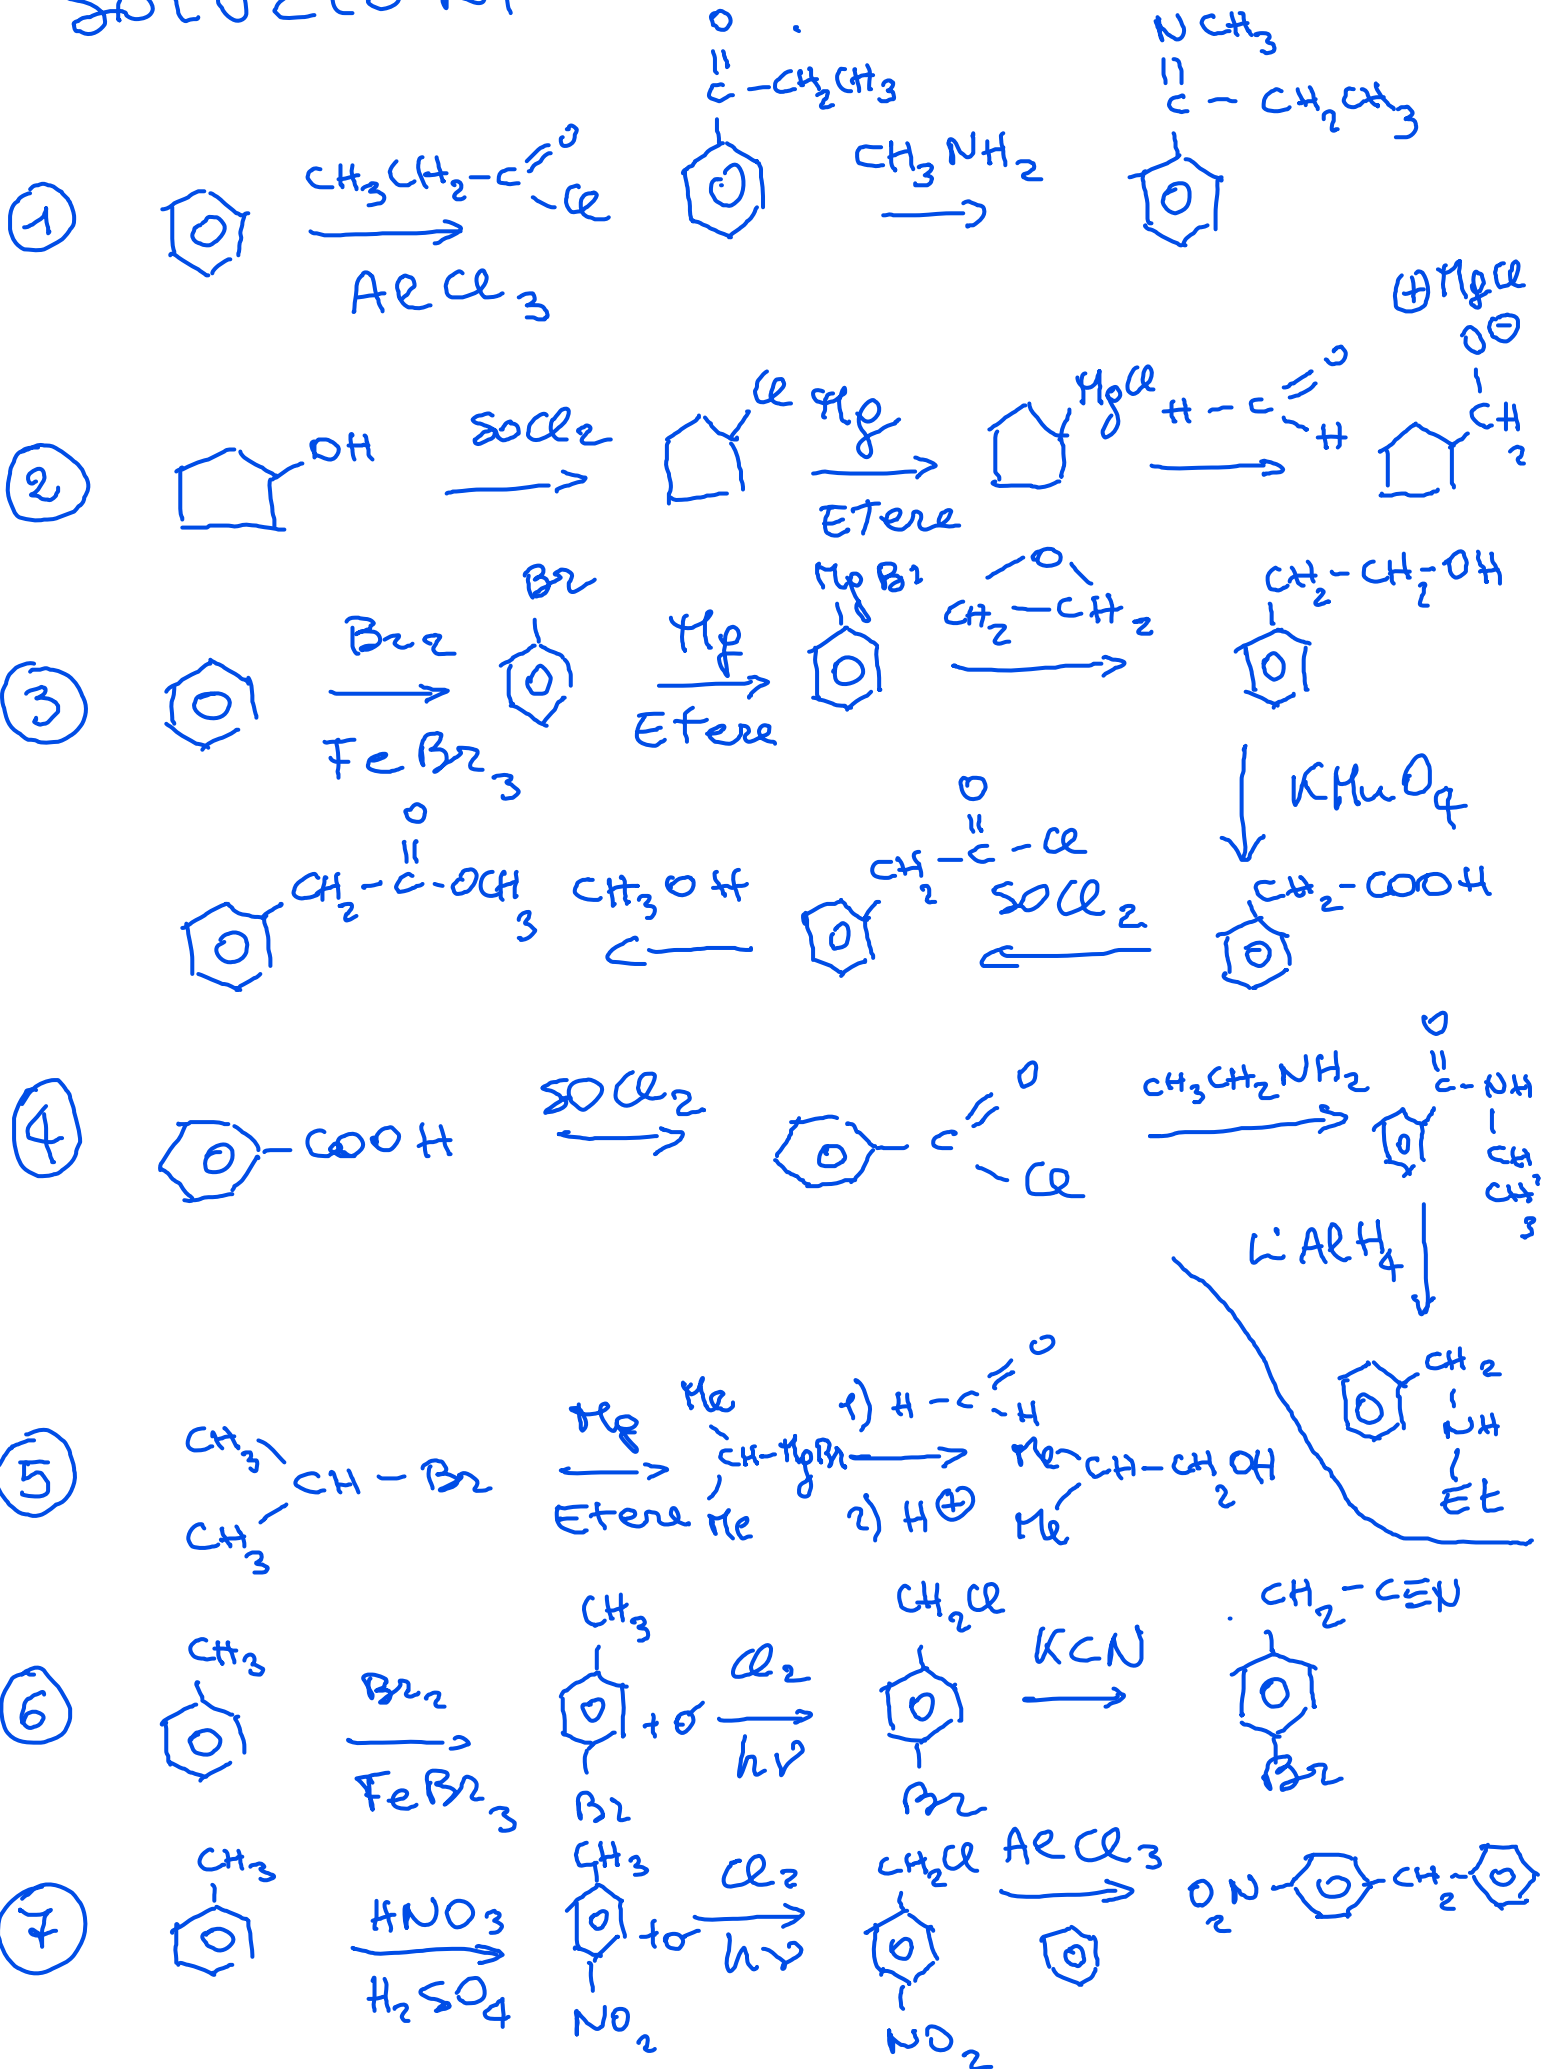 SOLUZIONI
① CH₃CH₂-C(=O)-Cl / AlCl₃ → C(=O)-CH₂CH₃ CH₃NH₂ → NCH₃ = C - CH₂CH₃
② OH SOCl₂ → Cl Mg / Etere → MgCl H-C(=O)-H → ⊕MgCl O⊖ - CH₂
③ Br₂ / FeBr₃ → Br Mg / Etere → MgBr CH₂-CH₂ O → CH₂-CH₂-OH
↓ KMnO₄
CH₂-C(=O)-OCH₃ CH₃OH ← CH₂-C(=O)-Cl SOCl₂ ← CH₂-COOH
④ COOH SOCl₂ → C(=O)-Cl CH₃CH₂NH₂ → C(=O)-NH-CH₂CH₃
LiAlH₄ ↓
CH₂-NH-Et
⑤ CH₃ CH₃ CH-Br Mg / Etere → Me Me CH-MgBr 1) H-C(=O)-H 2) H⊕ → Me Me CH-CH₂OH
⑥ CH₃ Br₂ / FeBr₃ → CH₃ Br + o Cl₂ / hν → CH₂Cl Br KCN → CH₂-C≡N Br
⑦ CH₃ HNO₃ / H₂SO₄ → CH₃ NO₂ + o Cl₂ / hν → CH₂Cl NO₂ AlCl₃ → O₂N-CH₂-